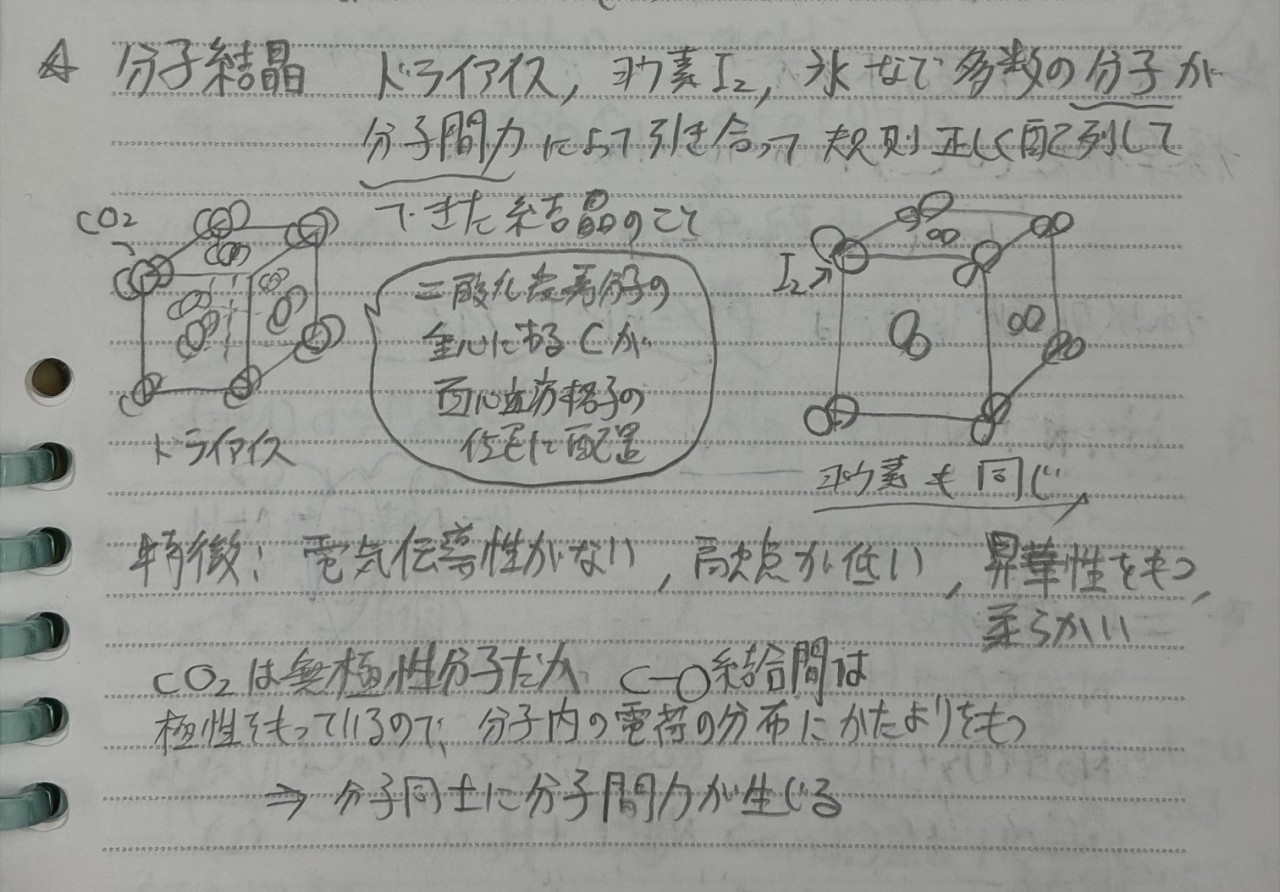 ☆ 分子結晶 ドライアイス, ヨウ素I₂, 氷など多数の分子が
分子間力によって引き合って規則正しく配列して
できた結晶のこと
CO₂
二酸化炭素分子の
重心にあるCが
面心立方格子の
位置に配置
I₂
ドライアイス
ヨウ素も同じ
特徴! 電気伝導性がない, 融点が低い, 昇華性をもつ,
柔らかい
CO₂は無極性分子だが C-O結合間は
極性をもっているので、分子内の電荷の分布にかたよりをもつ
⇒ 分子同士に分子間力が生じる